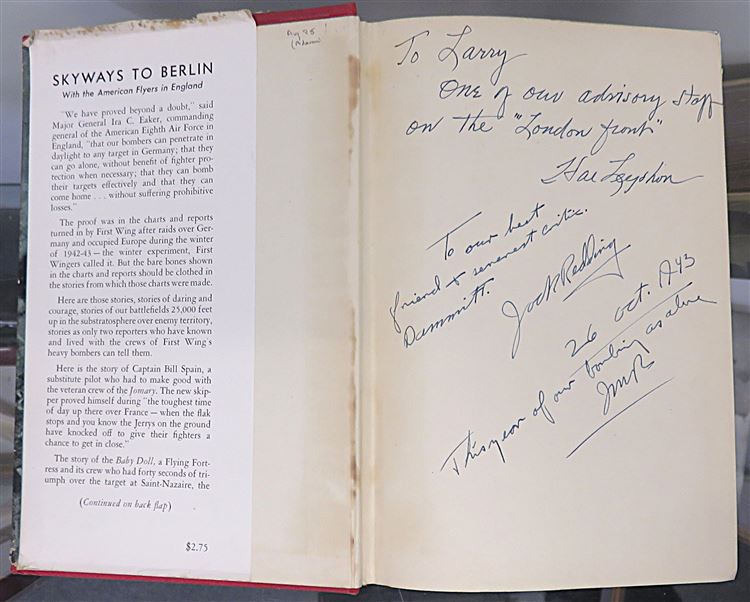 SKYWAYS TO BERLIN
With the American Flyers in England
"We have proved beyond a doubt," said
Major General Ira C. Eaker, commanding
general of the American Eighth Air Force in
England, "that our bombers can penetrate in
daylight to any target in Germany; that they
can go alone, without benefit of fighter pro-
tection when necessary; that they can bomb
their targets effectively and that they can
come home . . . without suffering prohibitive
losses."
The proof was in the charts and reports
turned in by First Wing after raids over Ger-
many and occupied Europe during the winter
of 1942-43 — the winter experiment, First
Wingers called it. But the bare bones shown
in the charts and reports should be clothed in
the stories from which those charts were made.
Here are those stories, stories of daring and
courage, stories of our battlefields 25,000 feet
up in the substratosphere over enemy territory,
stories as only two reporters who have known
and lived with the crews of First Wing's
heavy bombers can tell them.
Here is the story of Captain Bill Spain, a
substitute pilot who had to make good with
the veteran crew of the Jomary. The new skip-
per proved himself during "the toughest time
of day up there over France — when the flak
stops and you know the Jerrys on the ground
have knocked off to give their fighters a
chance to get in close."
The story of the Baby Doll, a Flying Fort-
ress and its crew who had forty seconds of tri-
umph over the target at Saint-Nazaire, the
(Continued on back flap)
$2.75
Aug 25
To Larry
One of our advisory staff
on the "London front"
Hal Leyshon
To our best
friend & severest critic.
Dammitt.
Jock Redding
26 Oct. 1943
This year of our bombing as above
JMR